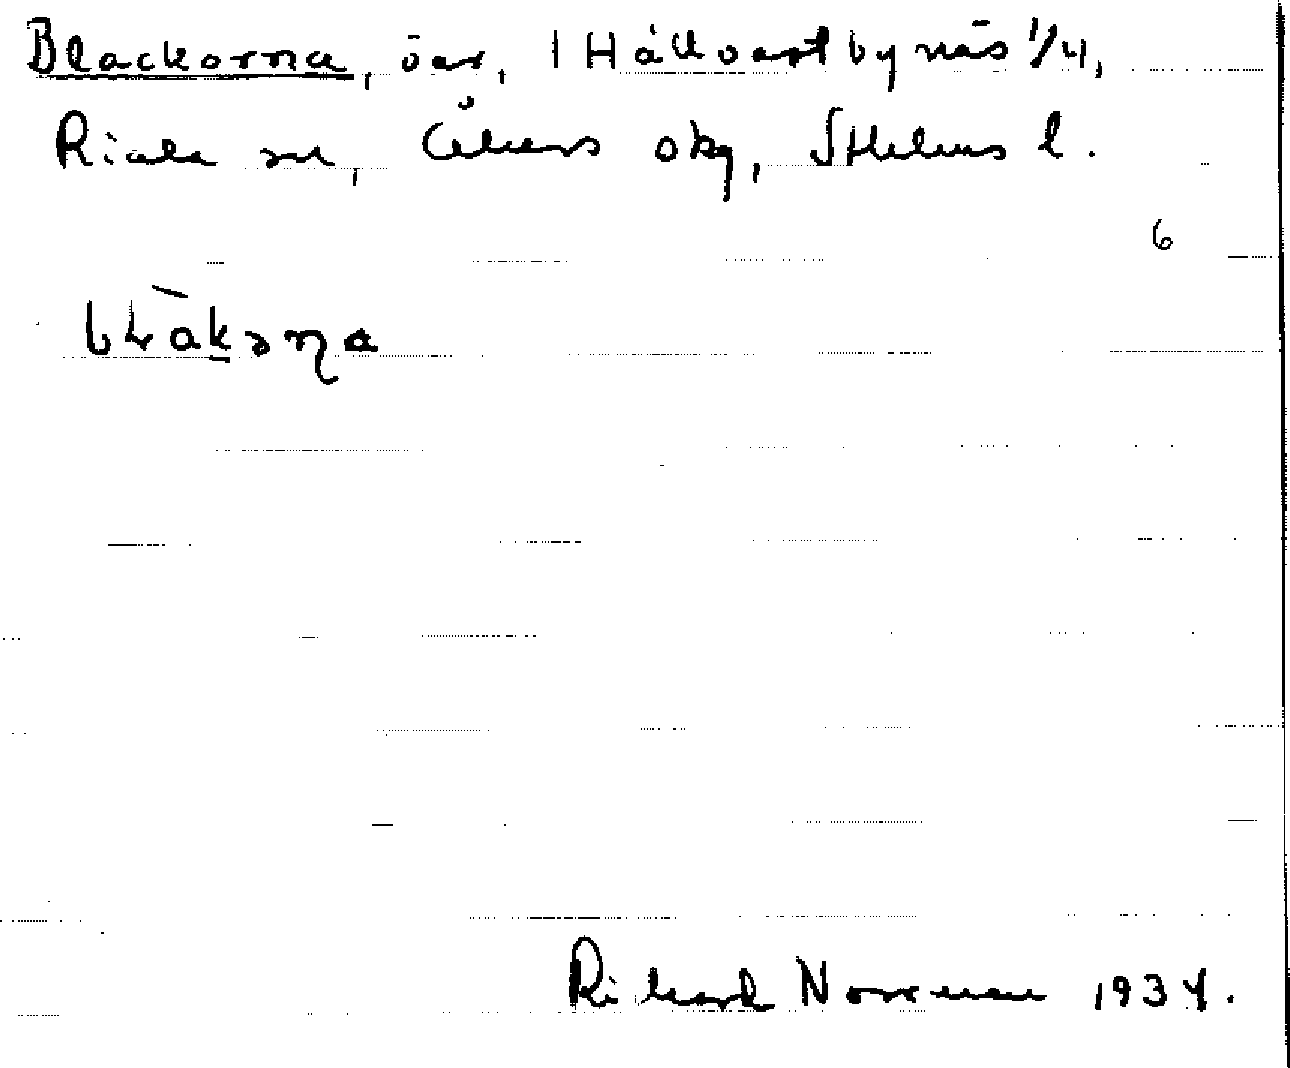 Blackorna, öar, 1 Hållvastbynäs 1/4,
Riala sn, Åkers skg, Sthlms l.
6
blàkərṇa
Rikard Norrman 1934.